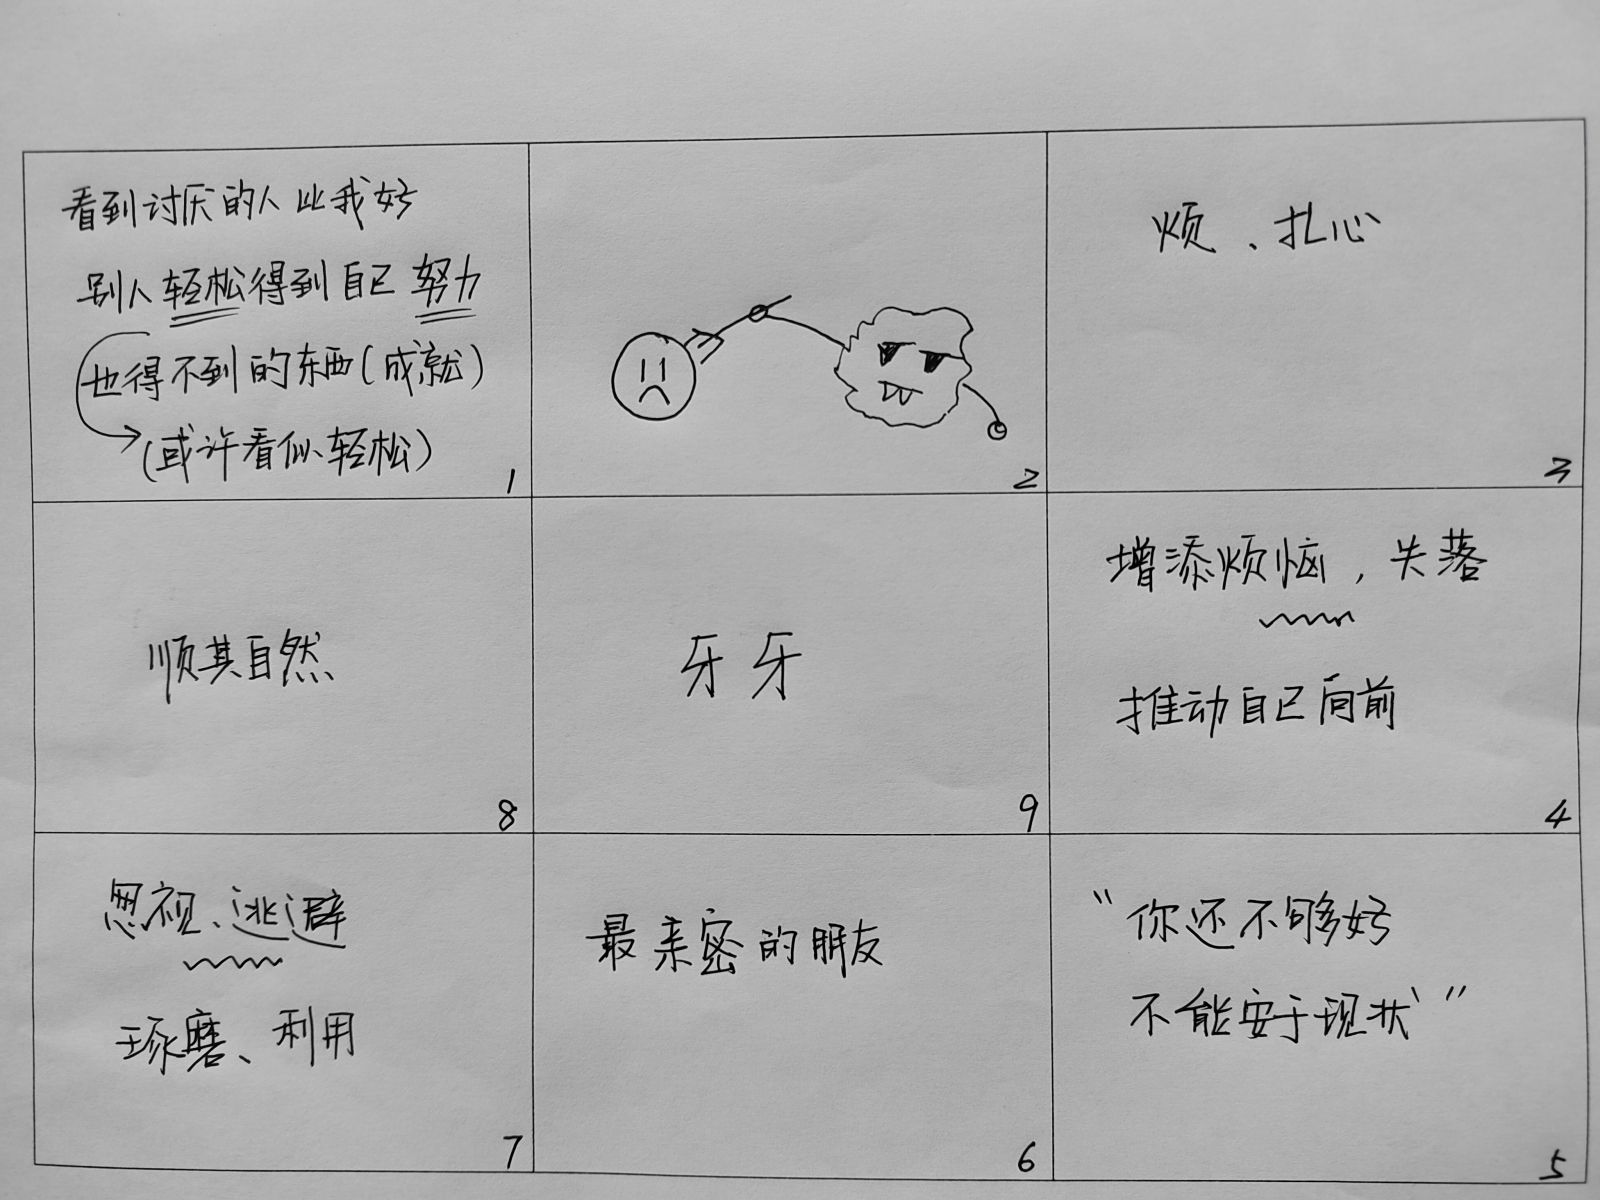 看到讨厌的人比我好
别人轻松得到自己努力
也得不到的东西(成就)
(或许看似轻松)
1
2
烦、扎心
3
顺其自然
8
牙牙
9
增添烦恼,失落
推动自己向前
4
忽视、逃避
琢磨、利用
7
最亲密的朋友
6
“你还不够好
不能安于现状”
5